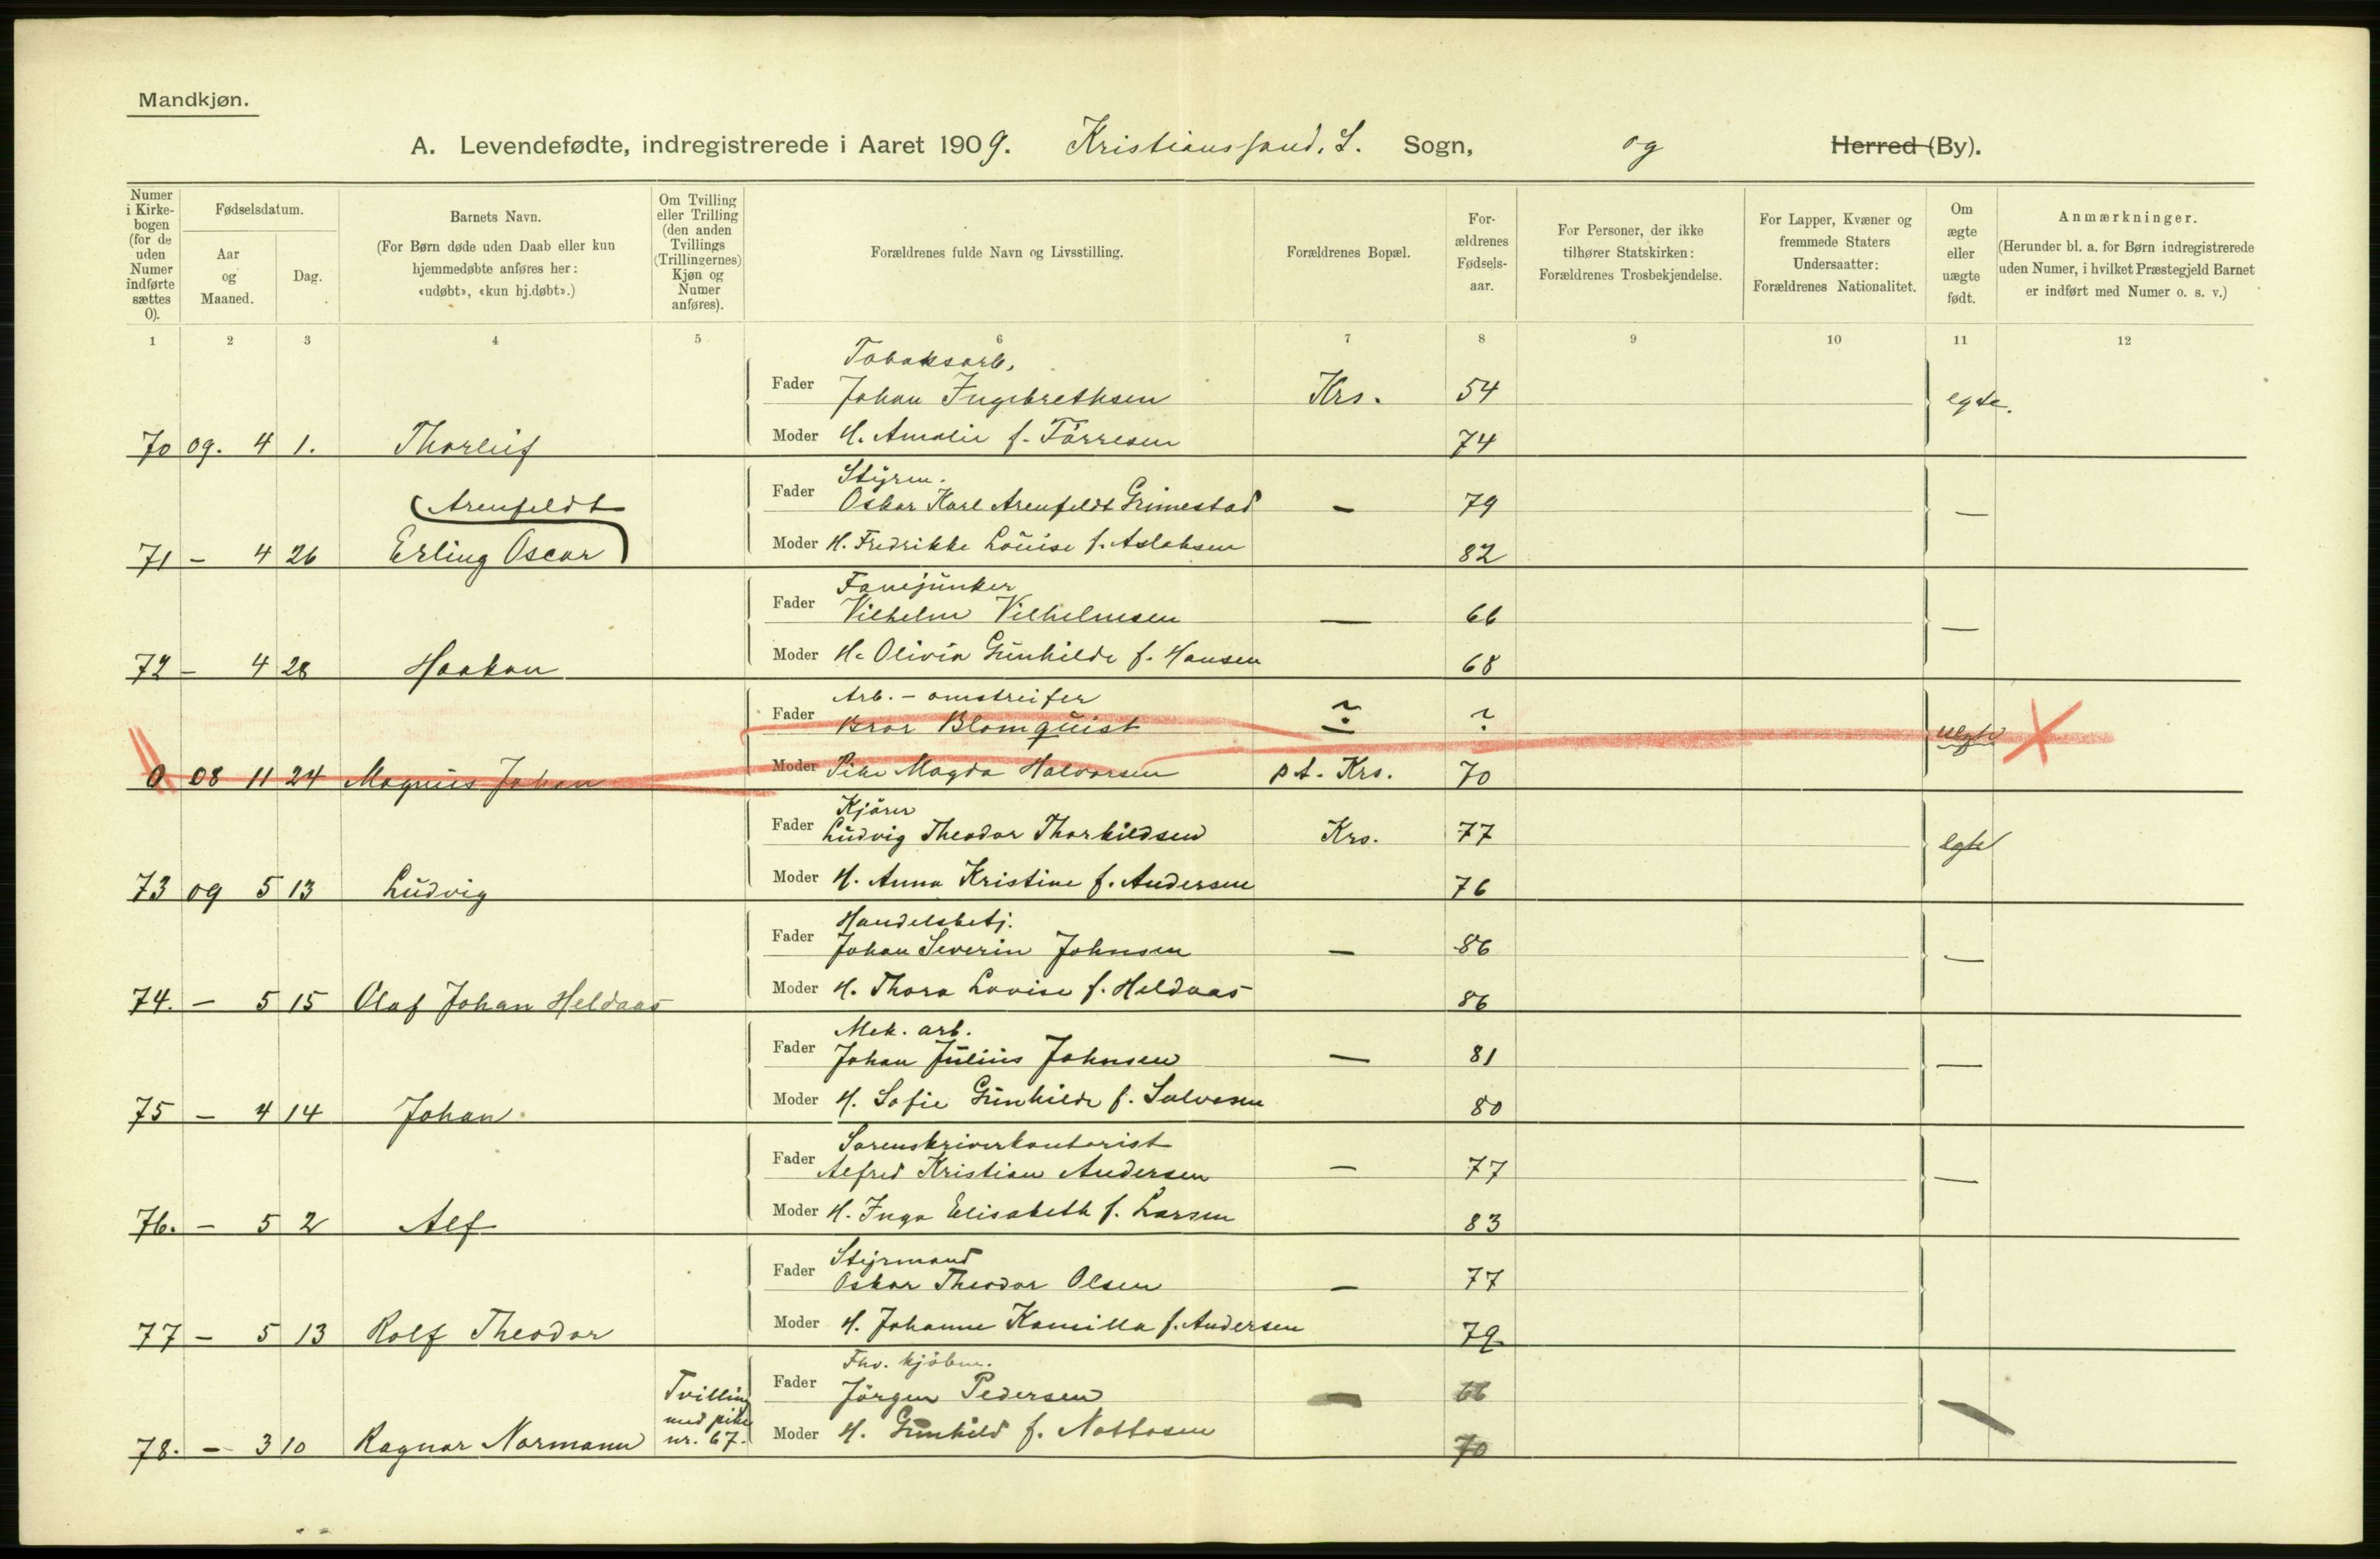 Mandkjøn.
A. Levendefødte, indregistrerede i Aaret 1909. Kristianssand. S. Sogn, og Herred (By).
Numer i Kirke-bogen (for de uden Numer indførte sættes 0).
Fødselsdatum.
Aar og Maaned.
Dag.
Barnets Navn.
(For Børn døde uden Daab eller kun hjemmedøbte anføres her: «udøbt», «kun hj.døbt».)
Om Tvilling eller Trilling (den anden Tvillings (Trillingernes) Kjøn og Numer anføres).
Forældrenes fulde Navn og Livsstilling.
Forældrenes Bopæl.
For-ældrenes Fødsels-aar.
For Personer, der ikke tilhører Statskirken: Forældrenes Trosbekjendelse.
For Lapper, Kvæner og fremmede Staters Undersaatter: Forældrenes Nationalitet.
Om ægte eller uægte født.
Anmærkninger.
(Herunder bl. a. for Børn indregistrerede uden Numer, i hvilket Præstegjeld Barnet er indført med Numer o. s. v.)
1 2 3 4 5 6 7 8 9 10 11 12
Tobaksarb.
Fader Johan Ingebrethsen Krs. 54 egte.
70 09. 4 1. Thorleif Moder H. Amalie f. Tørresen 74
Styrm.
Arenfeldt Fader Oskar Karl Arenfeldt Grimestad — 79 —
71 — 4 26 Erling Oscar Moder H. Fredrikke Louise f. Aslaksen 82
Fanejunker
Fader Vilhelm Vilhelmsen — 66 —
72 — 4 28 Haakon Moder H. Olivia Gunhilde f. Hansen 68
Arb. - omstreifer
Fader Bror Blomquist ? ? uegte
0 08 11 24 Magnus Johan Moder Pike Magda Halvorsen p.t. Krs. 70
Kjører
Fader Ludvig Theodor Thorkildsen Krs. 77 egte
73 09 5 13 Ludvig Moder H. Anna Kristine f. Andersen 76
Handelsbetj.
Fader Johan Severin Johnsen — 86 —
74. — 5 15 Olaf Johan Heldaas Moder H. Thora Lovise f. Heldaas 86
Mek. arb.
Fader Johan Julius Johnsen — 81 —
75 — 4 14 Johan Moder H. Sofie Gunhilde f. Salvesen 80
Sorenskriverkontorist
Fader Alfred Kristian Andersen — 77 —
76. — 5 2 Alf Moder H. Inga Elisabeth f. Larsen 83
Styrmand
Fader Oskar Theodor Olsen — 77
77 — 5 13 Rolf Theodor Moder H. Johanne Kamilla f. Andersen 79
Fhv. kjøbm.
Tvilling Fader Jörgen Pedersen — 66 —
med pike
78. — 3 10 Ragnar Normann nr. 67. Moder H. Gunhild f. Nottosen 70